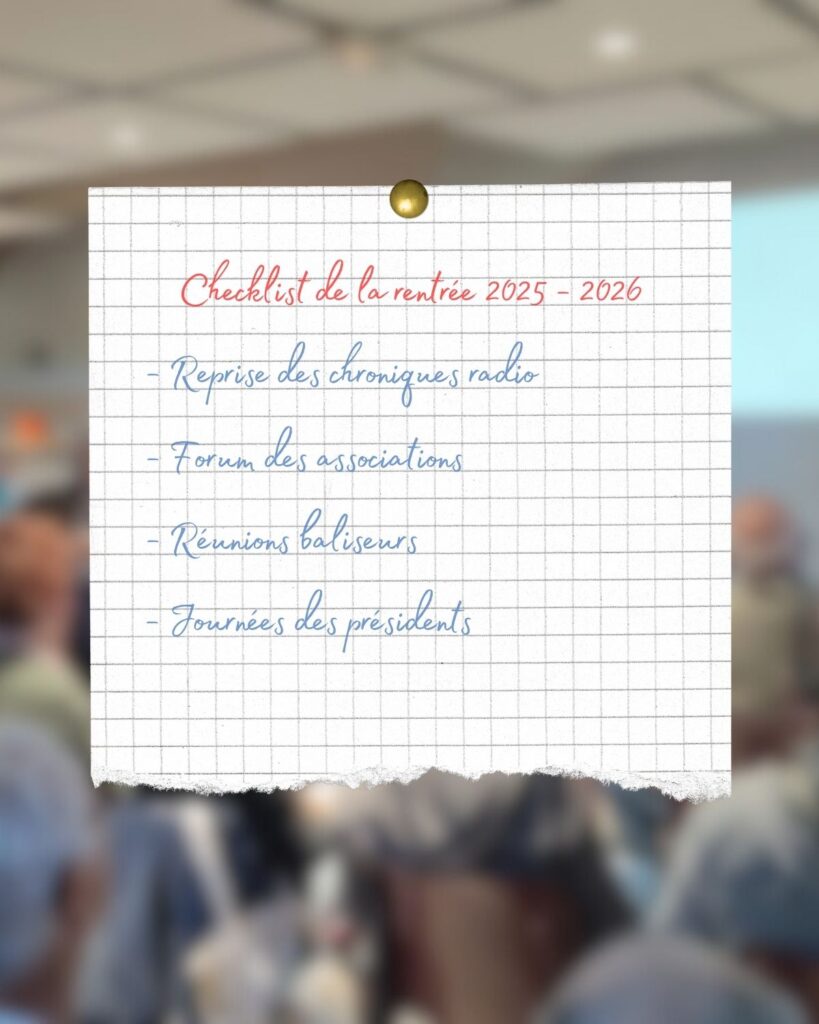 Checklist de la rentrée 2025 - 2026
- Reprise des chroniques radio
- Forum des associations
- Réunions baliseurs
- Journées des présidents